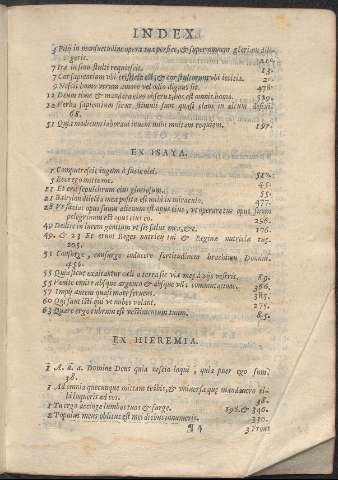 INDEX.
3 Fili in mansuetudine opera tua perfice, & super omnem gloriam dili-
geris. 
7 Ira in sinu stulti requiescit. 13.
7 Cor sapientium ubi tristitia est, & cor stultorum ubi lætitia. 20.
9 Nescit homo utrum amore vel odio dignus sit. 478.
12 Deum time & mandata eius observa, hoc est omnis homo. 520.
12 Verba sapientium sicut stimuli sunt quasi clavi in altum defixi.
68.
51 Quia modicum laboravi inveni mihi multam requiem. 197.
EX ISAYA.
1 Computrescet iugum à facie olei. 512.
5 Ecce ego mitte me. 45.
11 Et erit sepulchrum eius gloriosum. 55.
21 Babylon dilecta mea posita est mihi in miraculo. 477.
28 Ut faciat opus suum alienum est opus eius, ut operetur opus suum
peregrinum est opus eius eo. 256.
49 Dedi te in lucem gentium ut sis salus mea, &c. 176.
49. & 23 Et erunt Reges nutricii tui & Reginæ nutrices tuæ
205.
51 Consurge, consurge induere fortitudinem brachium Domini.
456.
55 Quia sicut exaltantur cæli a terra sic viæ meæ à viis vestris. 89.
55 Venite emite absque argento & absque ulla commutatione. 366.
57 Impii autem quasi mare fervens. 385.
60 Qui sunt isti qui ut nubes volant. 275.
63 Quare ergo rubrum est vestimentum tuum. 85.
EX HIEREMIA.
1 A. a. a. Domine Deus quia nescio loqui, quia puer ego sum.
38.
1 Ad omnia quæcunque mittam te ibis, & universa quæ mandavero ti-
bi loqueris ad eos. 48.
1 Tu ergo accinge lumbos tuos & surge. 198. & 340.
2 Populus meus oblitus est mei diebus innumeris. 330.
¶ 4 3 Front